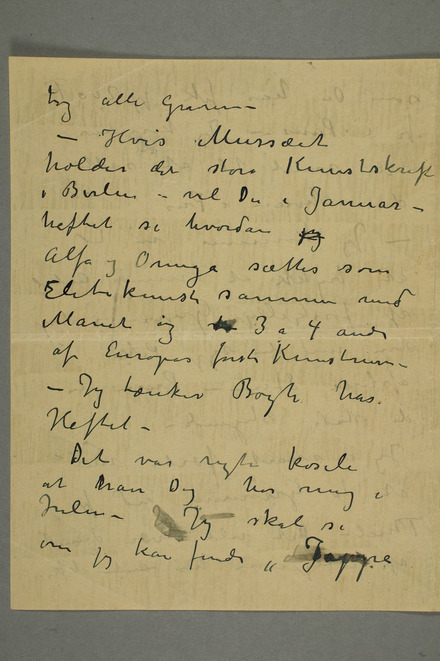 og alle Graven –
– Hvis Museet
holder det store Kunstskrift
i Berlin – vil Du i Januar –
heftet se hvordan jeg
Alfa og Omega sættes som
Elitekunst sammen med
Manet og 3 a 4 andre
af Europas første Kunstnere –
– Jeg tænker Bogh. has
Heftet –
Det var rigti koseli
at have Dig hos mig i
Julen – Jeg skal se
om jeg kan finde „